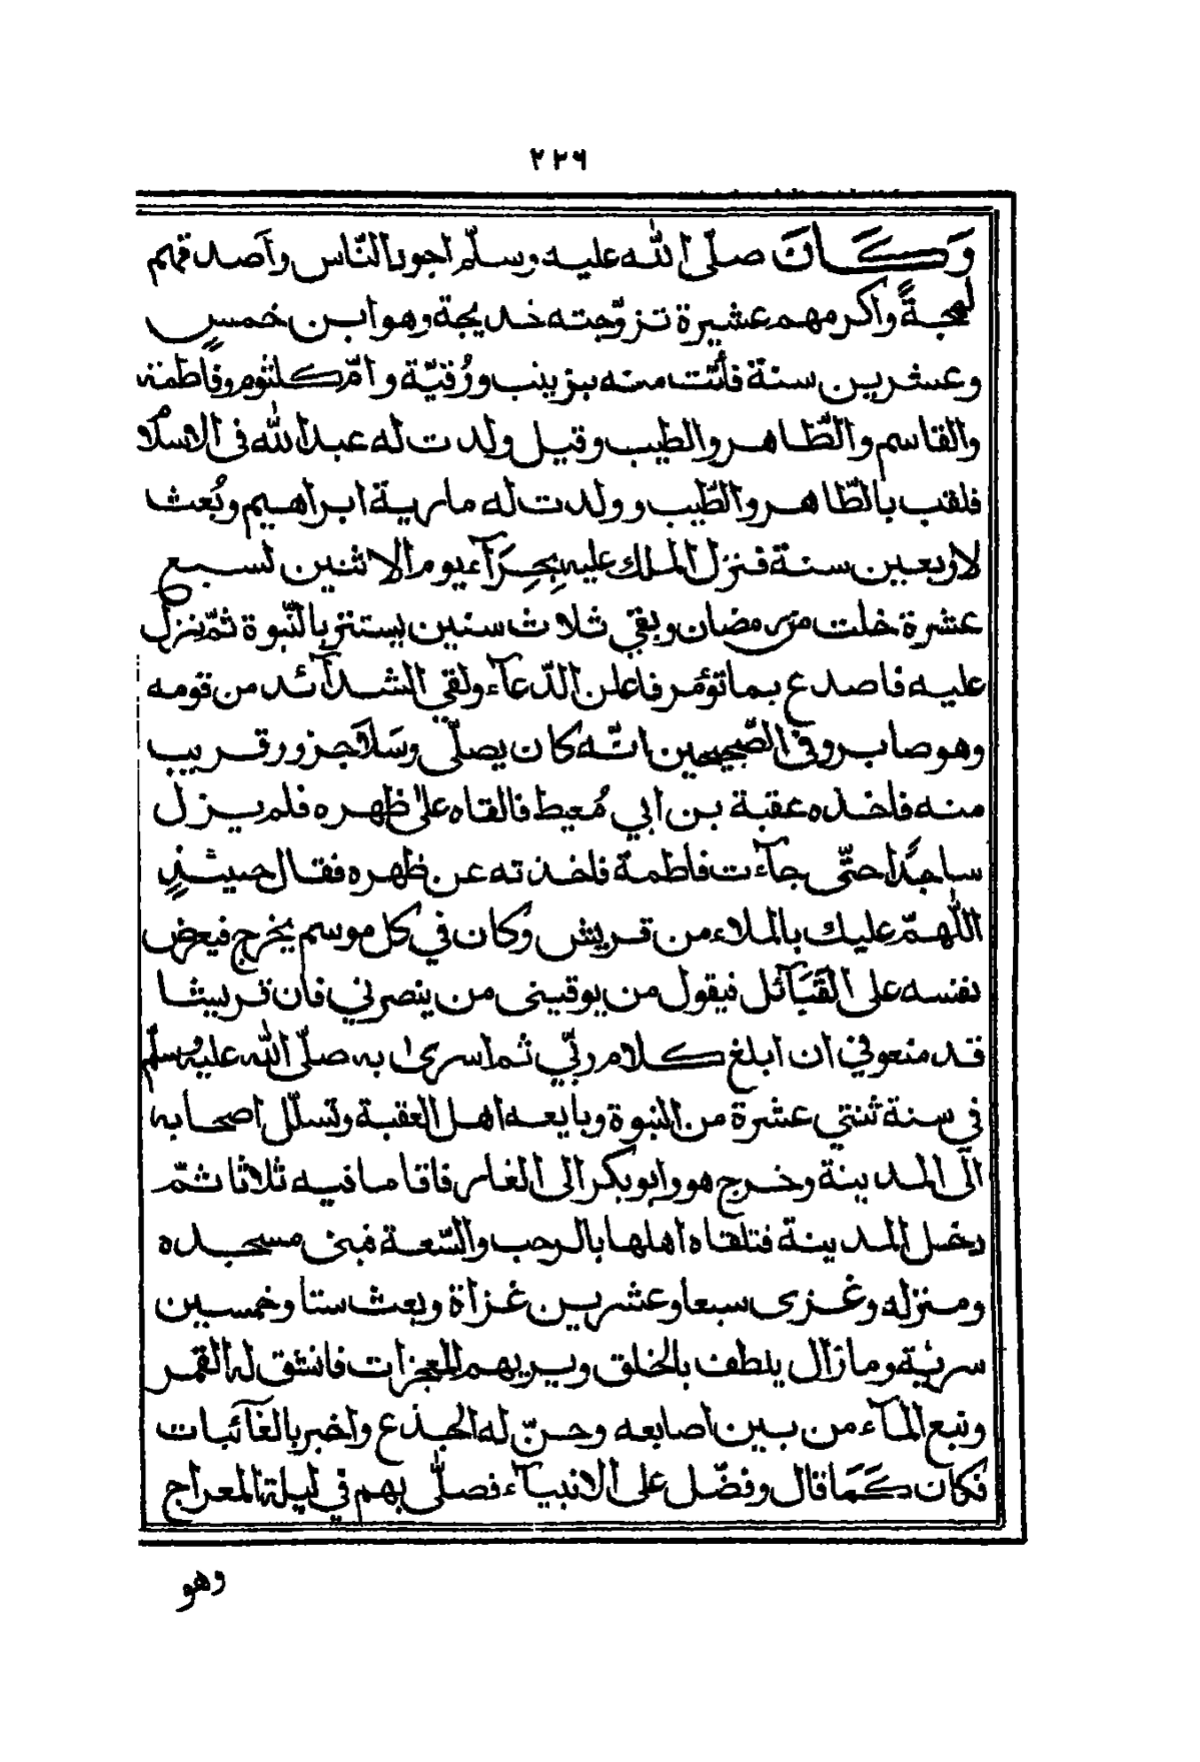 ٢٢٦
وَكَانَ صلّى الله عليه وسلّم اجود النّاس وأصدقهم
لهجةً واكرمهم عشيرة تزوّجته خديجة وهو ابن خمسٍ
وعشرين سنة فأتت منه بزينب ورُقيّة وامّ كلثوم وفاطمة
والقاسم والطّاهر والطيب وقيل ولدت له عبدالله في الاسلام
فلقب بالطّاهر والطّيب وولدت له مارية ابراهيم وبُعث
لاربعين سنة فنزل الملك عليه بِحِرَآء يوم الاثنين لسبع
عشرة خلت من رمضان وبقي ثلاث سنين يستتر بالنّبوة ثمّ نزل
عليه فاصدع بما تؤمر فاعلن الدّعآء ولقي الشدآئد من قومه
وهو صابر وفي الصّحيحين انّه كان يصلّي وسَلَا جزور قريب
منه فاخذه عقبة بن ابي مُعيط فالقاه على ظهره فلم يزل
ساجدًا حتّى جآءت فاطمة فاخذته عن ظهره فقال حينئذٍ
اللّهمّ عليك بالملاء من قريش وكان في كل موسم يخرج فيعرض
نفسه على القَبَآئل فيقول من يوقيني من ينصرني فان قريشا
قد منعوني ان ابلغ كلام ربّي ثم اسرى به صلّى الله عليه وسلّم
في سنة ثنتي عشرة من النبوة وبايعه اهل العقبة وتسلّل اصحابه
الى المدينة وخرج هو وابوبكر الى الغار فاقاما فيه ثلاثا ثمّ
دخل المدينة فتلقاه اهلها بالرحب والسّعة فبنى مسجده
ومنزله وغزى سبعا وعشرين غزاة وبعث ستا وخمسين
سريّة وما زال يلطف بالخلق ويريهم المعجزات فانشق له القمر
ونبع المآء من بين اصابعه وحنّ له الجذع واخبر بالغآئبات
فكان كَمَا قال وفضّل على الانبيآء فصلّى بهم في ليلة المعراج
وهو